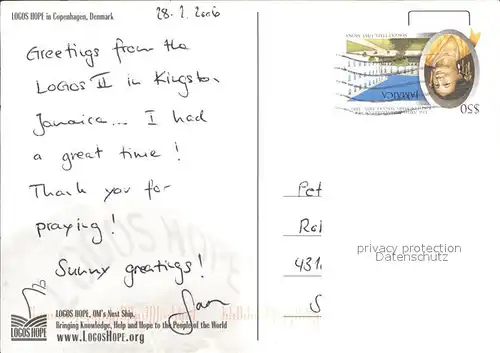 LOGOS HOPE in Copenhagen, Denmark
28.2.2006
Greetings from the
LOGOS II in Kingston,
Jamaica... I had
a great time!
Thank you for
praying!
Sunny greetings!
$50
JAMAICA
Pet
Ral
431
S
privacy protection
Datenschutz
LOGOS HOPE
LOGOS HOPE, OM's Next Ship,
Bringing Knowledge, Help and Hope to the People of the World
www.LogosHope.org